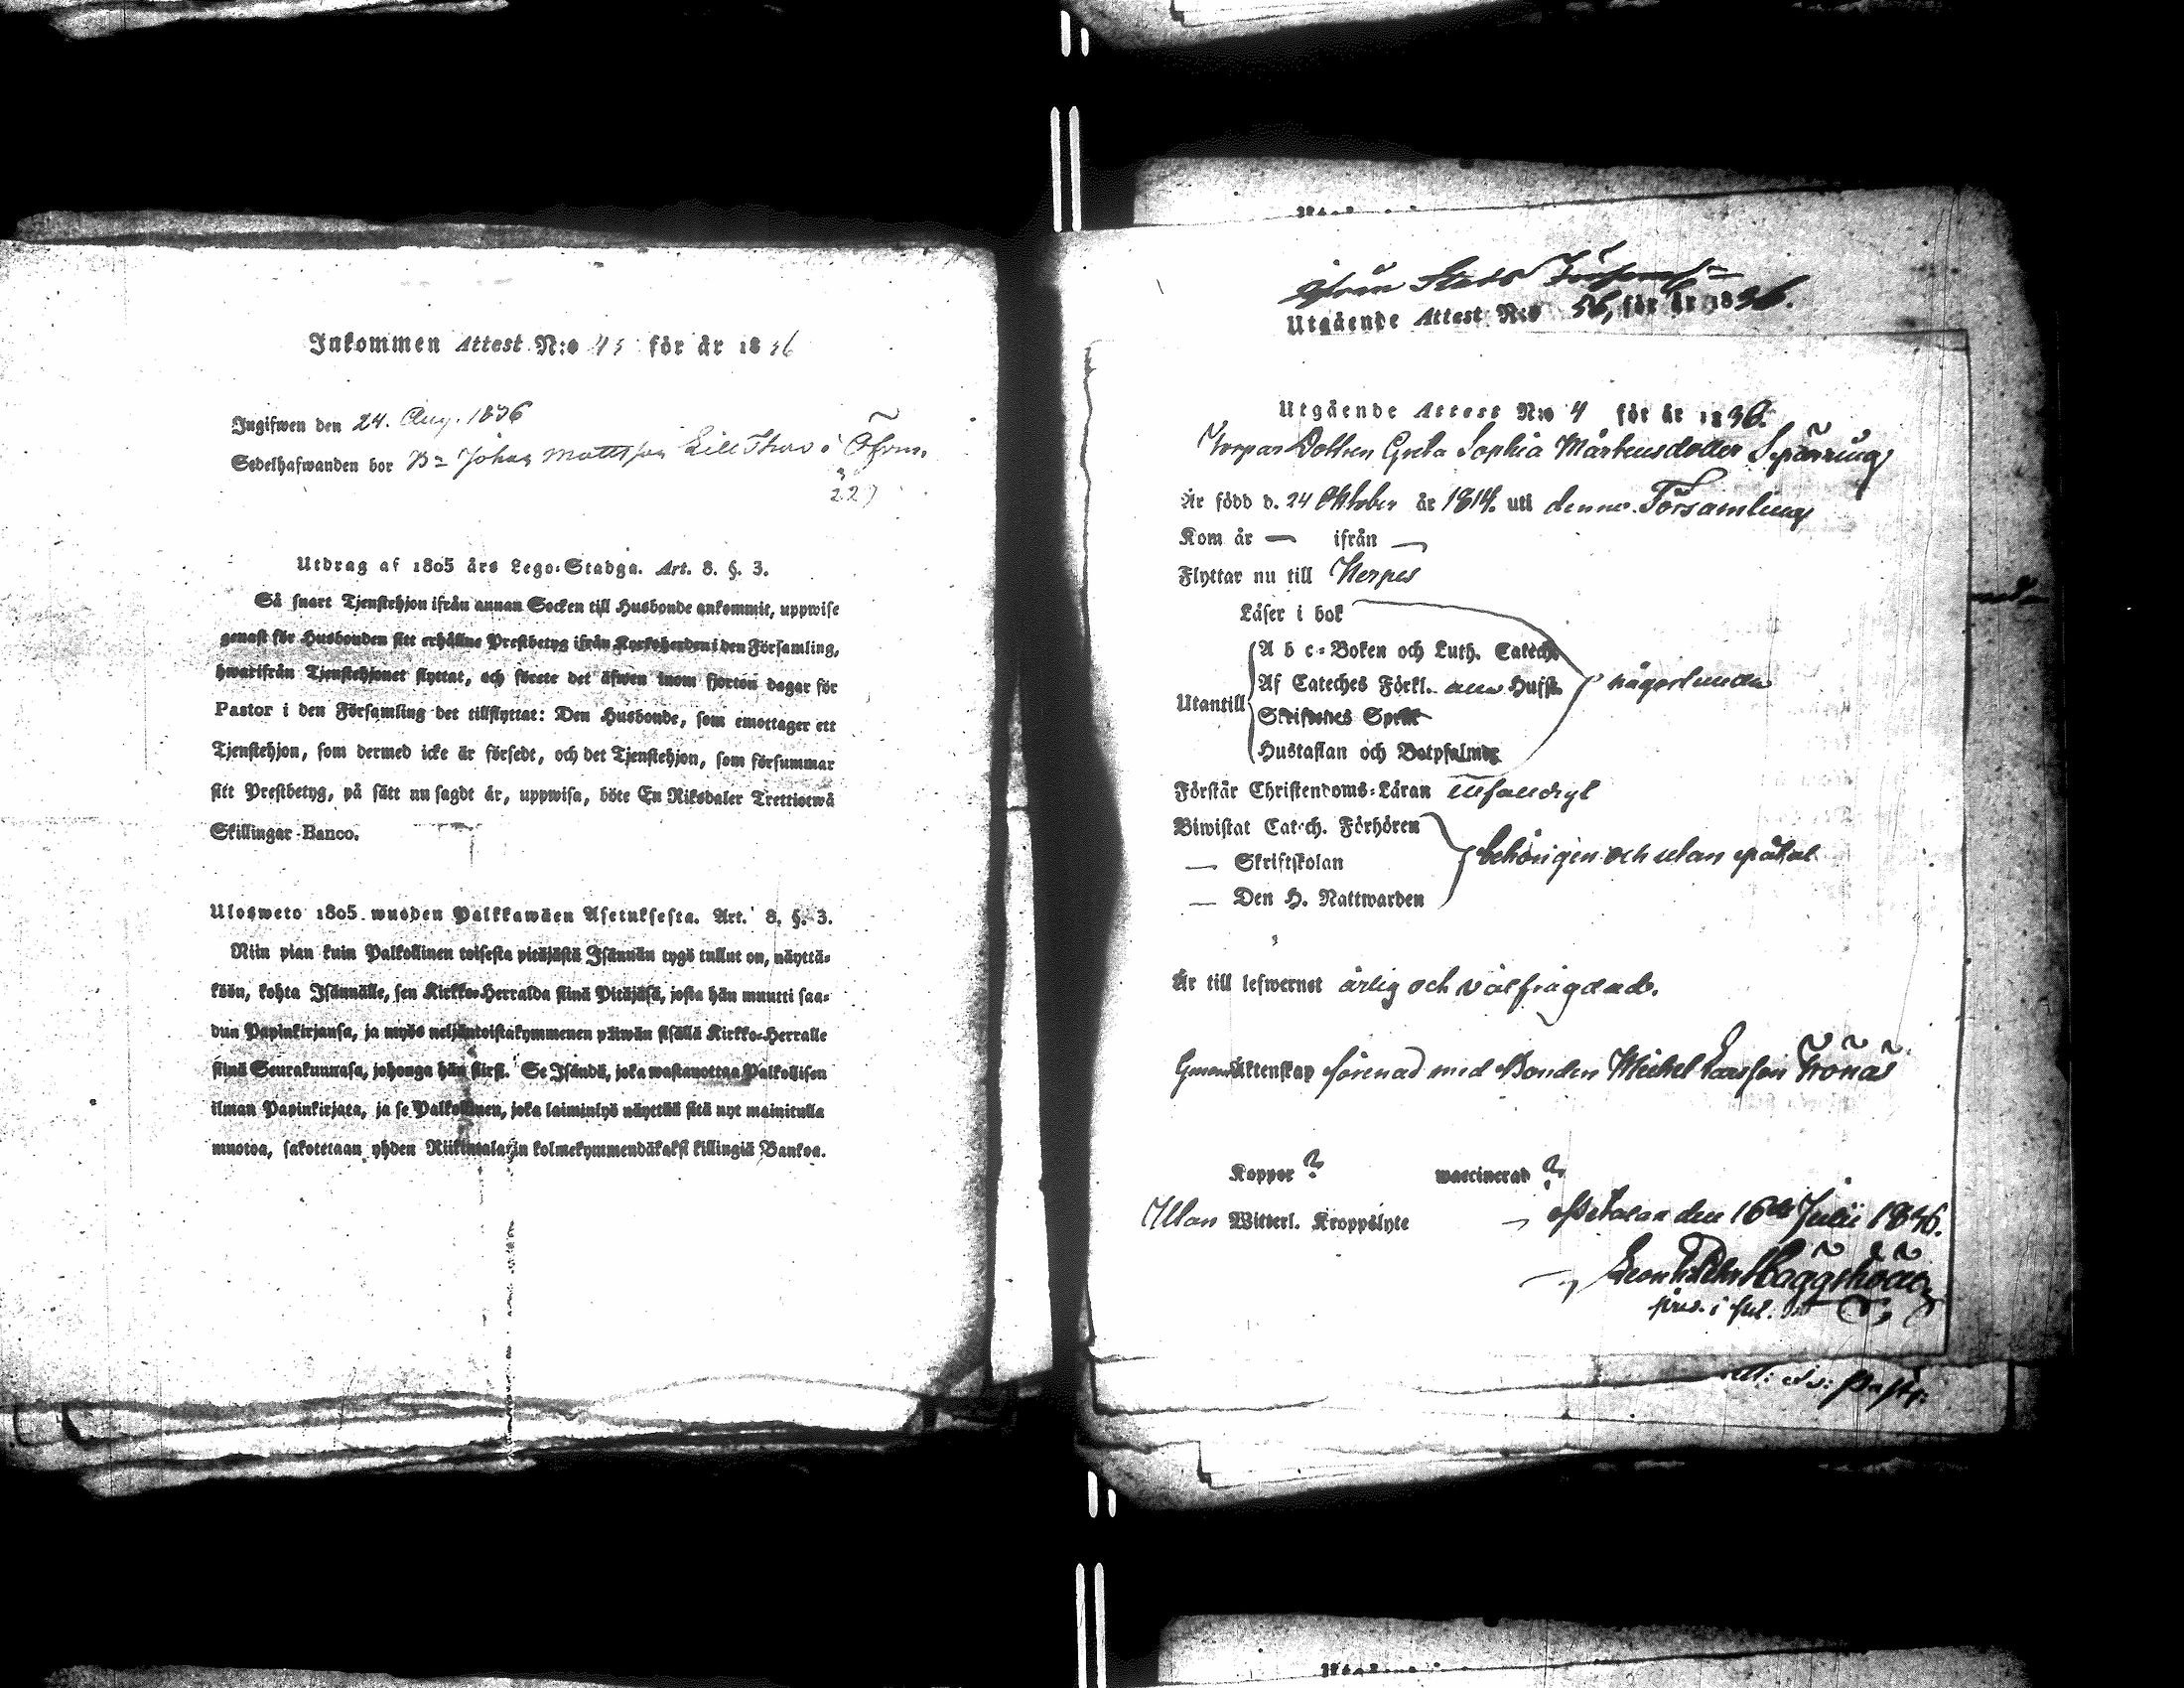 Inkommen Attest N:o 45 för år 1836
Ingifwen den 24. Aug. 1836
Sedelhafwanden bor Johan Mattsson Lill Thors i Öfverm.
227
Utdrag af 1805 års Lego-Stadga. Art. 8. §. 3.
Så snart Tjenstehjon ifrån annan Socken till Husbonde ankommit, uppwise
genast för Husbonden sitt erhållne Prestbetyg ifrån Kyrkoherden i den Församling,
hwarifrån Tjenstehjonet flyttat, och förete det äfwen inom fjorton dagar för
Pastor i den Församling det tillflyttat: Den Husbonde, som emottager ett
Tjenstehjon, som dermed icke är försedt, och det Tjenstehjon, som försummar
sitt Prestbetyg, på sätt nu sagdt är, uppwisa, böte En Riksdaler Trettiotwå
Skillingar Banco.
Ulosweto 1805 wuoden Palkkawäen Asetuksesta. Art. 8. §. 3.
Niin pian kuin Palkollinen toisesta pitäjästä Isännän tygö tullut on, näyttä-
köön, kohta Isännälle, sen Kirkko-Herralda siinä Pitäjäsä, josta hän muutti saa-
dun Papinkirjansa, ja myös neljäntoistakymmenen päiwän sisällä Kirkko-Herralle
siinä Seurakunnasa, johonga hän siirsi. Se Isändä, joka wastanottaa Palkollisen
ilman Papinkirjata, ja se Palkollinen, joka laiminlyö näyttää sitä nyt mainitulla
muotoa, sakotetaan yhden Riikintalarin kolmekymmendäkaksi killingiä Bankoa.
Utgående Attest N:o 56, för år 1836.
Utgående Attest N:o 4 för år 1836.
Torpar Dottren Greta Sophia Mårtensdotter Spårring
Är född d. 24 Oktober år 1814. uti denna Församling
Kom år — ifrån —
Flyttar nu till Kerpes
Läser i bok
A b c-Boken och Luth. Catech.
Utantill Af Cateches Förkl. Hufst. någorlunda
Skiftenes Språk
Hustaflan och Botpsalmer
Förstår Christendoms-Läran
Biwistat Catech. Förhören
— Skriftskolan behörigen och utan påtal
— Den H. Nattwarden
Är till lefwernet ärlig och välfrägdad.
Genom Äktenskap förenad med Bonden Michel Larsson
Koppor ? waccinerad ?
Utan Witterl. Kroppslyte — Petalax den 16de Julii 1836.
Häggström